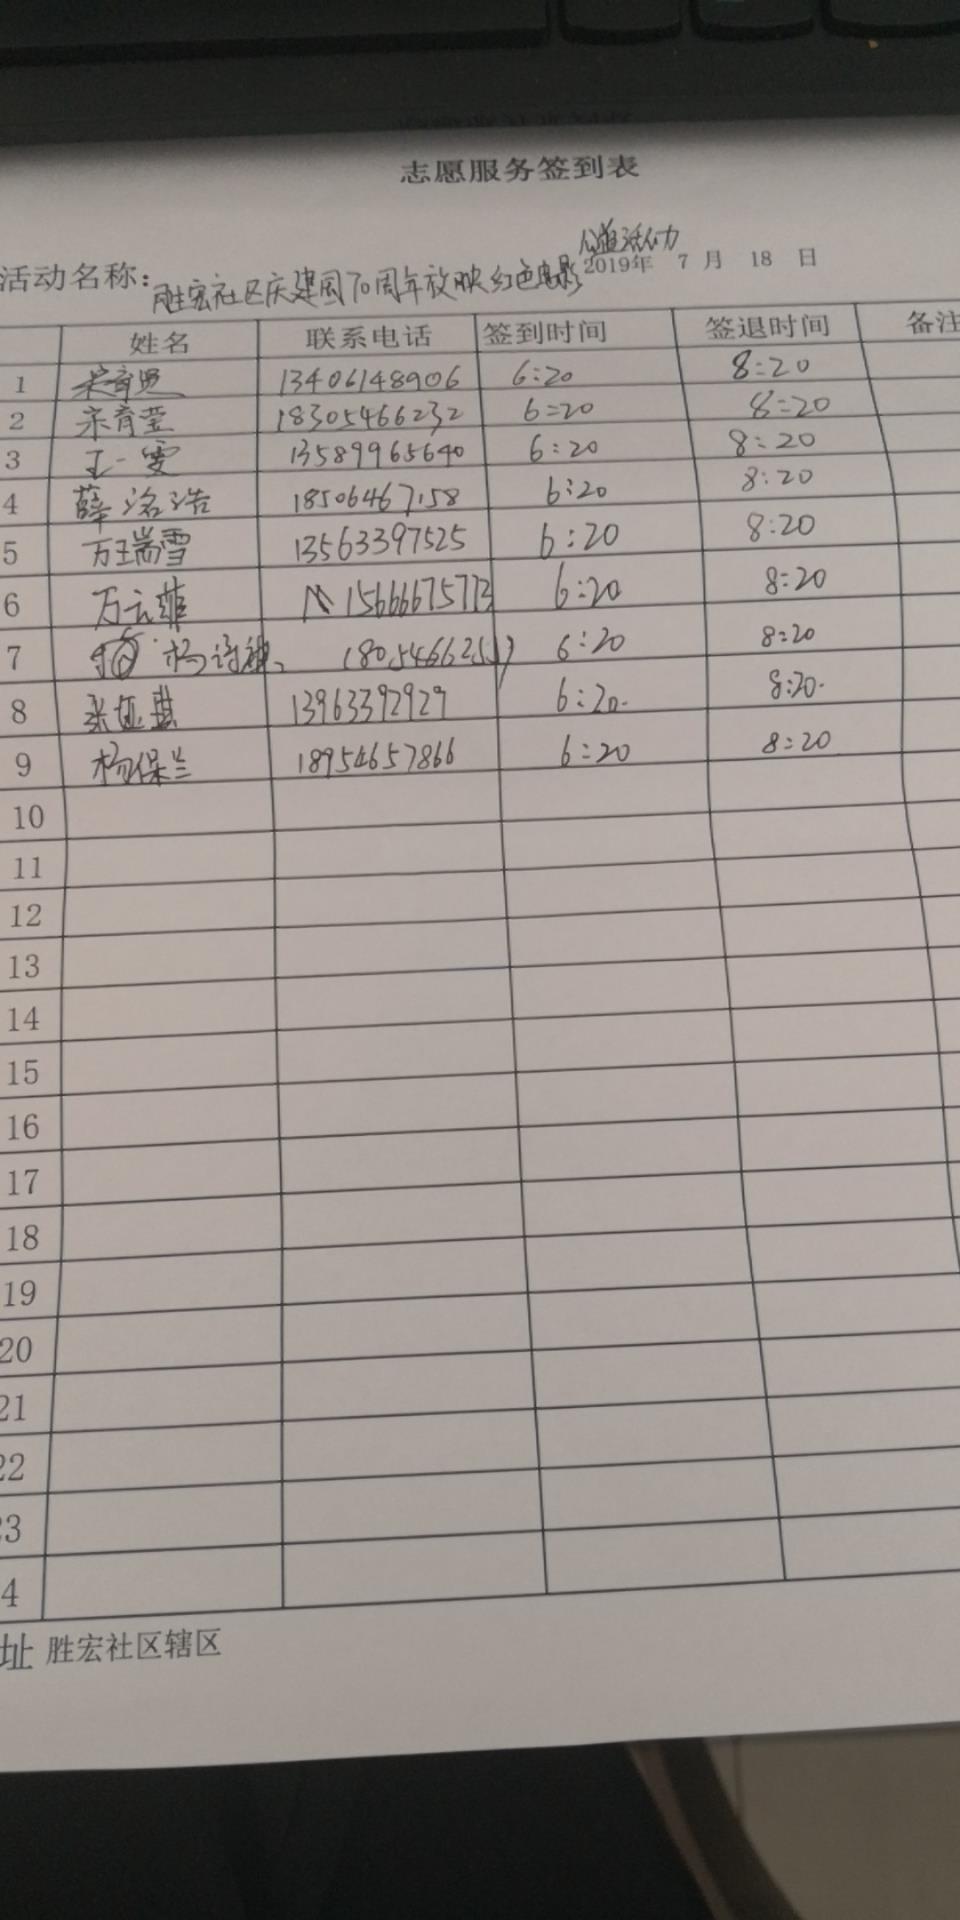 志愿服务签到表
公益活动
活动名称：胜宏社区庆建国70周年放映红色电影 2019年 7 月 18 日
姓名 联系电话 签到时间 签退时间 备注
1 13406148906 6:20 8:20
2 宋育莹 18305466232 6:20 8:20
3 王一雯 13589965640 6:20 8:20
4 薛洺浩 18506467158 6:20 8:20
5 万瑞雪 13563397525 6:20 8:20
6 万云菲 15666675773 6:20 8:20
7 杨诗 6:20 8:20
8 13963392929 6:20. 8:20.
9 杨保兰 18954657866 6:20 8:20
10
11
12
13
14
15
16
17
18
19
20
21
22
23
4
址 胜宏社区辖区